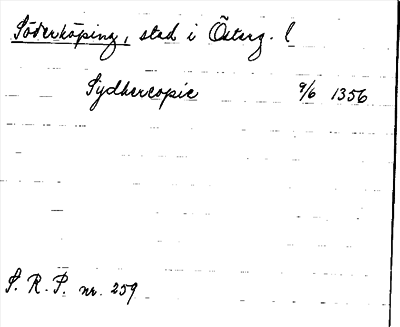 Söderköping, stad i Österg. l
Sydhercopie 9/6 1356
S. R. P. nr. 259